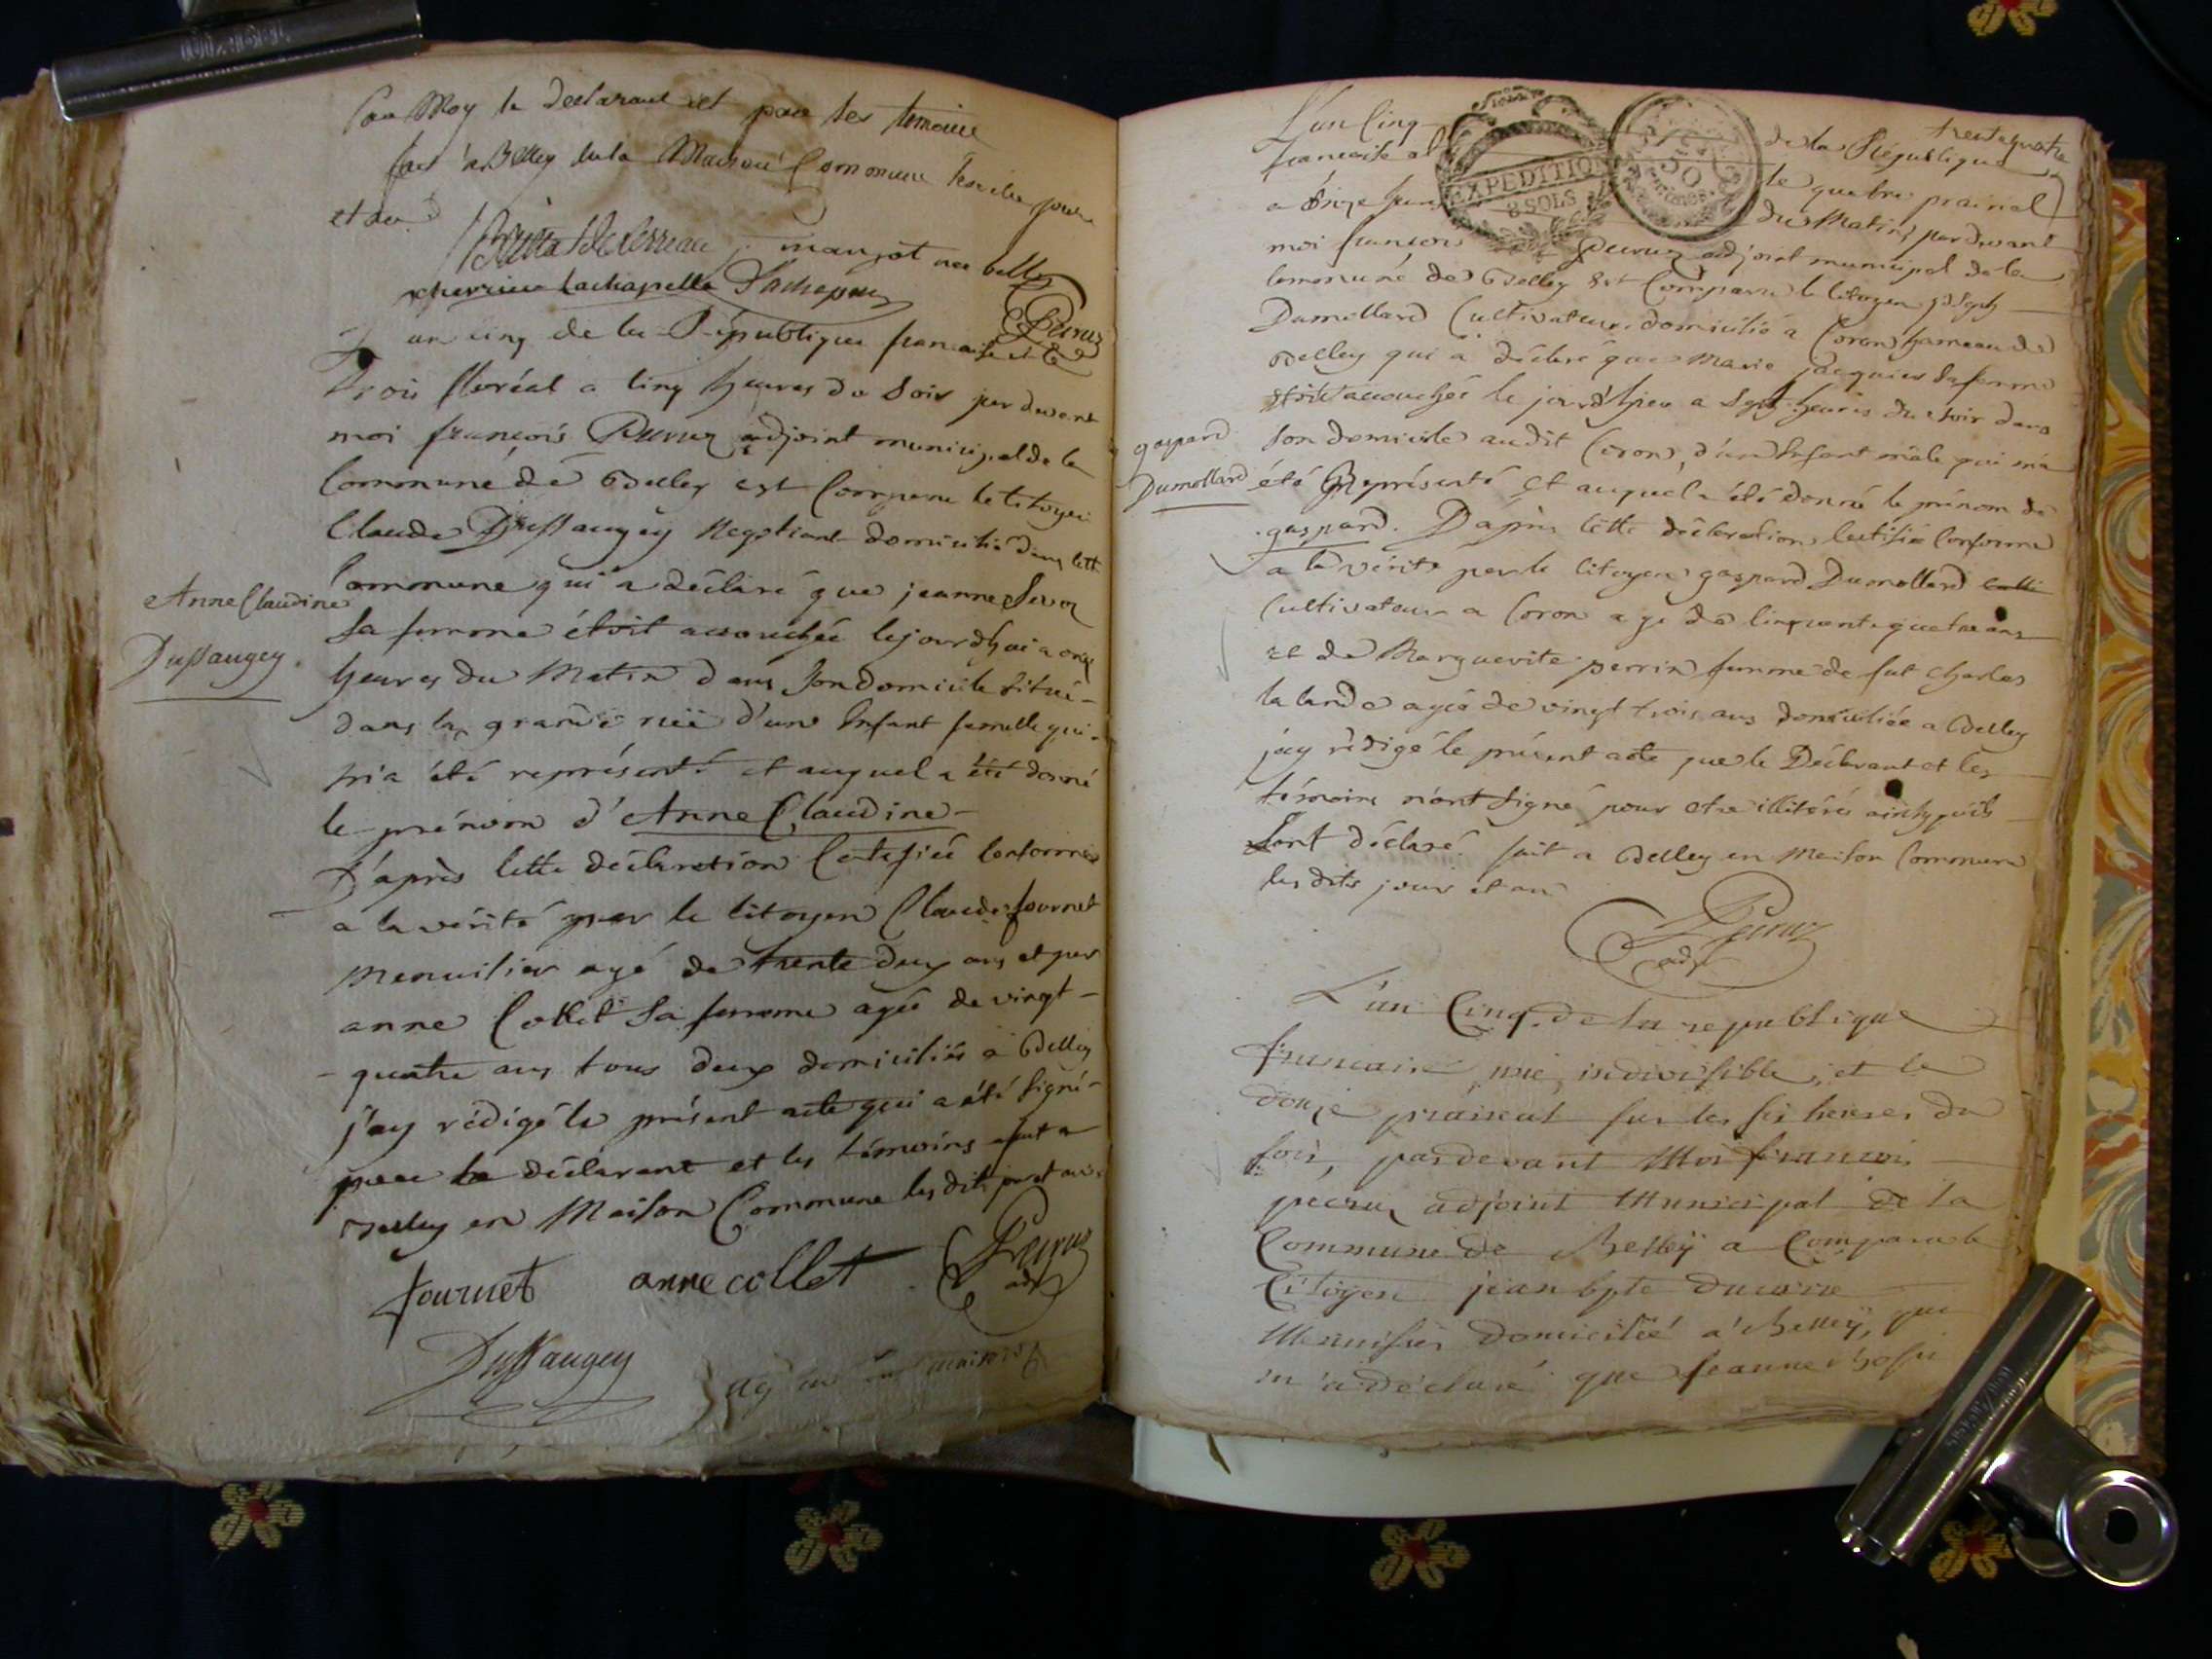 par Moy le declarant et par les temoins
fait à Belley en la Maison Commune les dits jours
et an
margot née belley
perrieu Lachapelle Lachapelle
Peruz
L'an cinq de la République francaise et le
Trois floréal a cinq heures du Soir par devant
moi françois Peruz adjoint municipal de la
Commune de Belley est Comparu le Citoyen
Claude Dussaugey Negotiant domicilié dans cette
Commune qui a déclaré que jeanne
Sa femme étoit accouchée le jourd'hui a onze
heures du Matin dans Son domicile situé
dans la grande rüe d'un Enfant femelle qui
m'a été représenté et auquel a été donné
le prénom d'Anne Claudine
D'après Cette déclaration Certifiée Conforme
a la vérité par le Citoyen Claude fournet
Menuisier agé de trente deux ans et par
anne Collet Sa femme agée de vingt
quatre ans tous deux domiciliés à Belley
j'ay rédigé le présent acte qui a été Signé
par le déclarant et les témoins fait a
Belley en Maison Commune les dits jour et an
fournet anne collet Peruz
adj
Dussaugey
Anne Claudine
Dussaugey
trente quatre
L'an Cinq de la République
francaise et le quatre prairial
a Onze heures du Matin par devant
moi francois Peruz adjoint municipal de la
Commune de Belley Est Comparu le Citoyen joseph
Dumollard Cultivateur domicilié a Coron hameau de
Belley qui a déclaré que Marie jacquier Sa femme
étoit accouchée le jour d'hier a Sept heures du Soir dans
Son domicile audit Coron, d'un Enfant mâle qui m'a
été Représenté Et auquel a été donné le prénom de
gaspard. D'après Cette déclaration Certifiée Conforme
a la vérité par le Citoyen gaspard Dumollard
Cultivateur a Coron agé de Cinquante quatre ans
et de Marguerite perrin femme de fut Charles
la lande agée de vingt trois ans domiciliée a Belley
j'ay rédigé le présent acte que le Déclarant et les
témoins n'ont Signé pour etre illitérés ainsy qu'ils
l'ont déclaré fait a Belley en Maison Commune
les dits jour et an
Peruz
adj
gaspard
Dumollard
EXPEDITION
8 SOLS
50
L'an Cinq de la republique
francaise une, indivisible, et le
douze prairial sur les six heures du
soir, pardevant Moi francois
péruz adjoint Municipal de la
Commune de Belleÿ a Comparu le
Citoyen jean bpte
Menuisier domicilié a Belleÿ, qui
m'a déclaré que jeanne